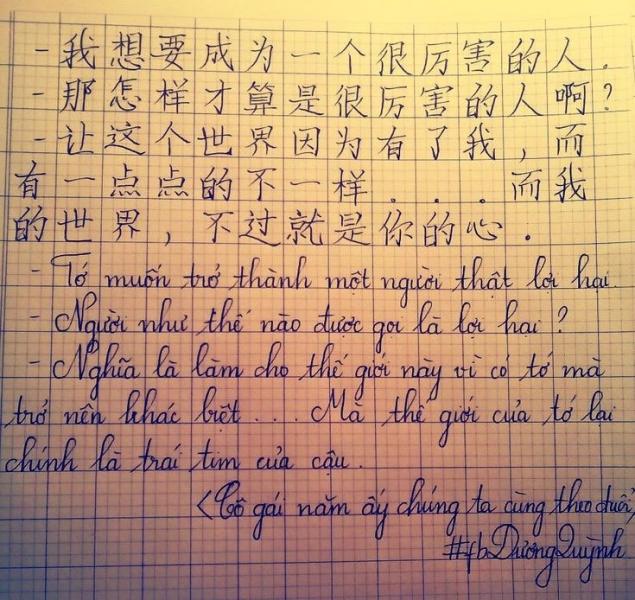 - 我想要成为一个很厉害的人.
- 那怎样才算是很厉害的人啊?
- 让这个世界因为有了我,而
有一点点的不一样....而我
的世界,不过就是你的心.
- Tớ muốn trở thành một người thật lợi hại.
- Người như thế nào được gọi là lợi hại?
- Nghĩa là làm cho thế giới này vì có tớ mà
trở nên khác biệt .... Mà thế giới của tớ lại
chính là trái tim của cậu.
<Cô gái năm ấy chúng ta cùng theo đuổi>
#fbDươngQuỳnh